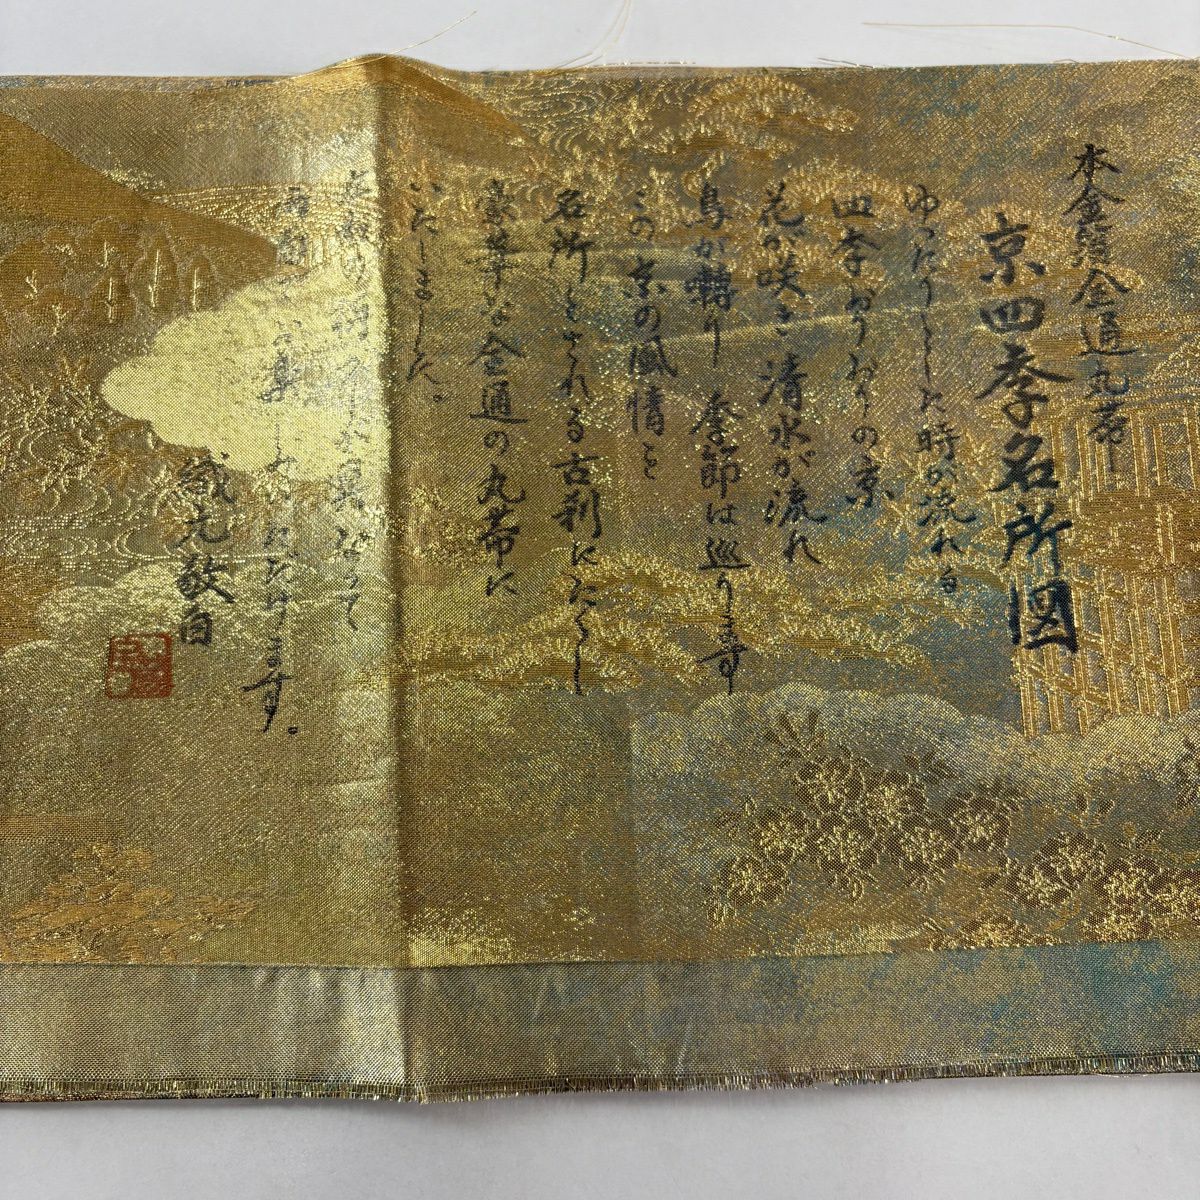 本金箔全通丸帯
京四季名所図
ゆったりとした時が流れる
四季おりおりの京
花が咲き清水が流れ
鳥が囀り季節は巡ります
この京の風情を
名所とされる古刹にたくし
豪華な全通の丸帯に
いたしました。
両面 お楽しみいただけます。
織元敬白